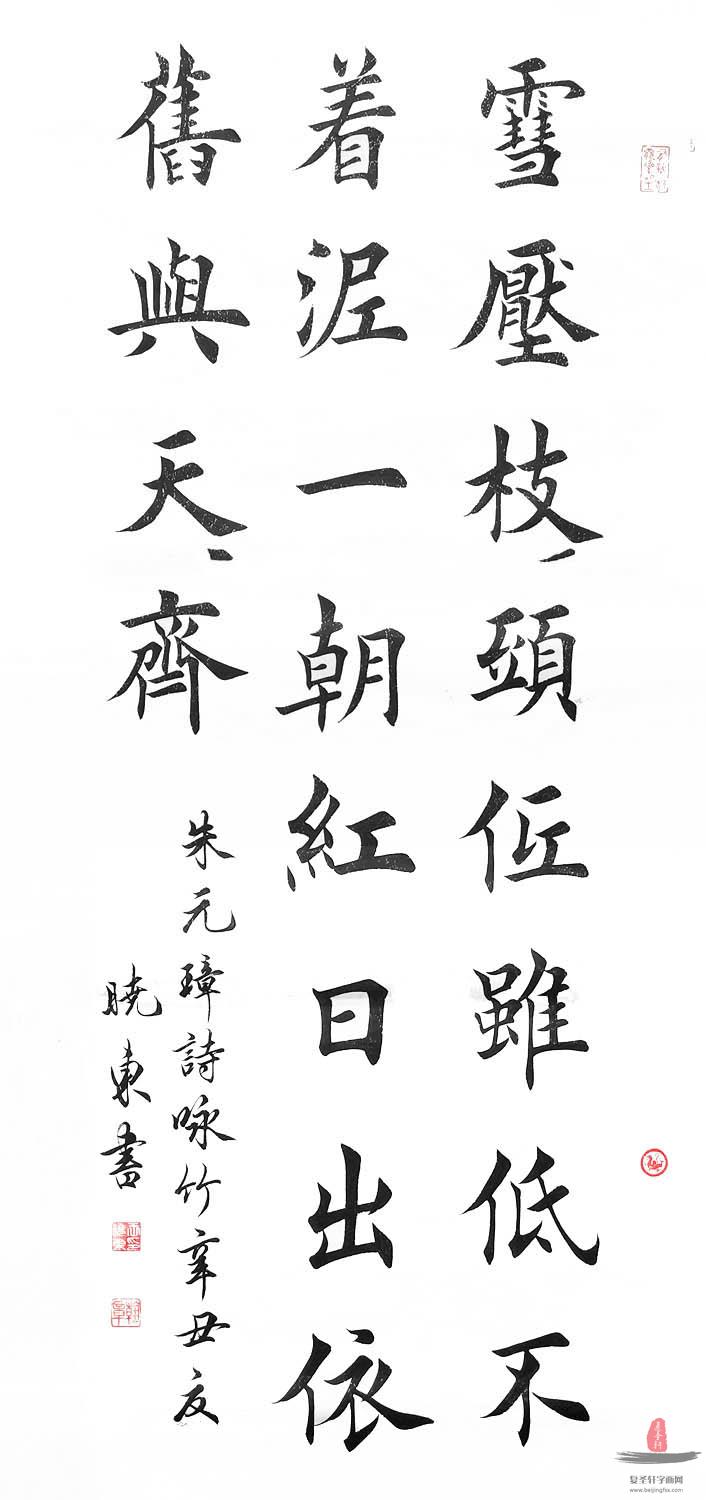 雪壓枝頭低雖低不
着泥一朝紅日出依
舊與天齊
朱元璋詩咏竹辛丑夏
曉東書
复圣轩字画网
www.beijingfsx.com